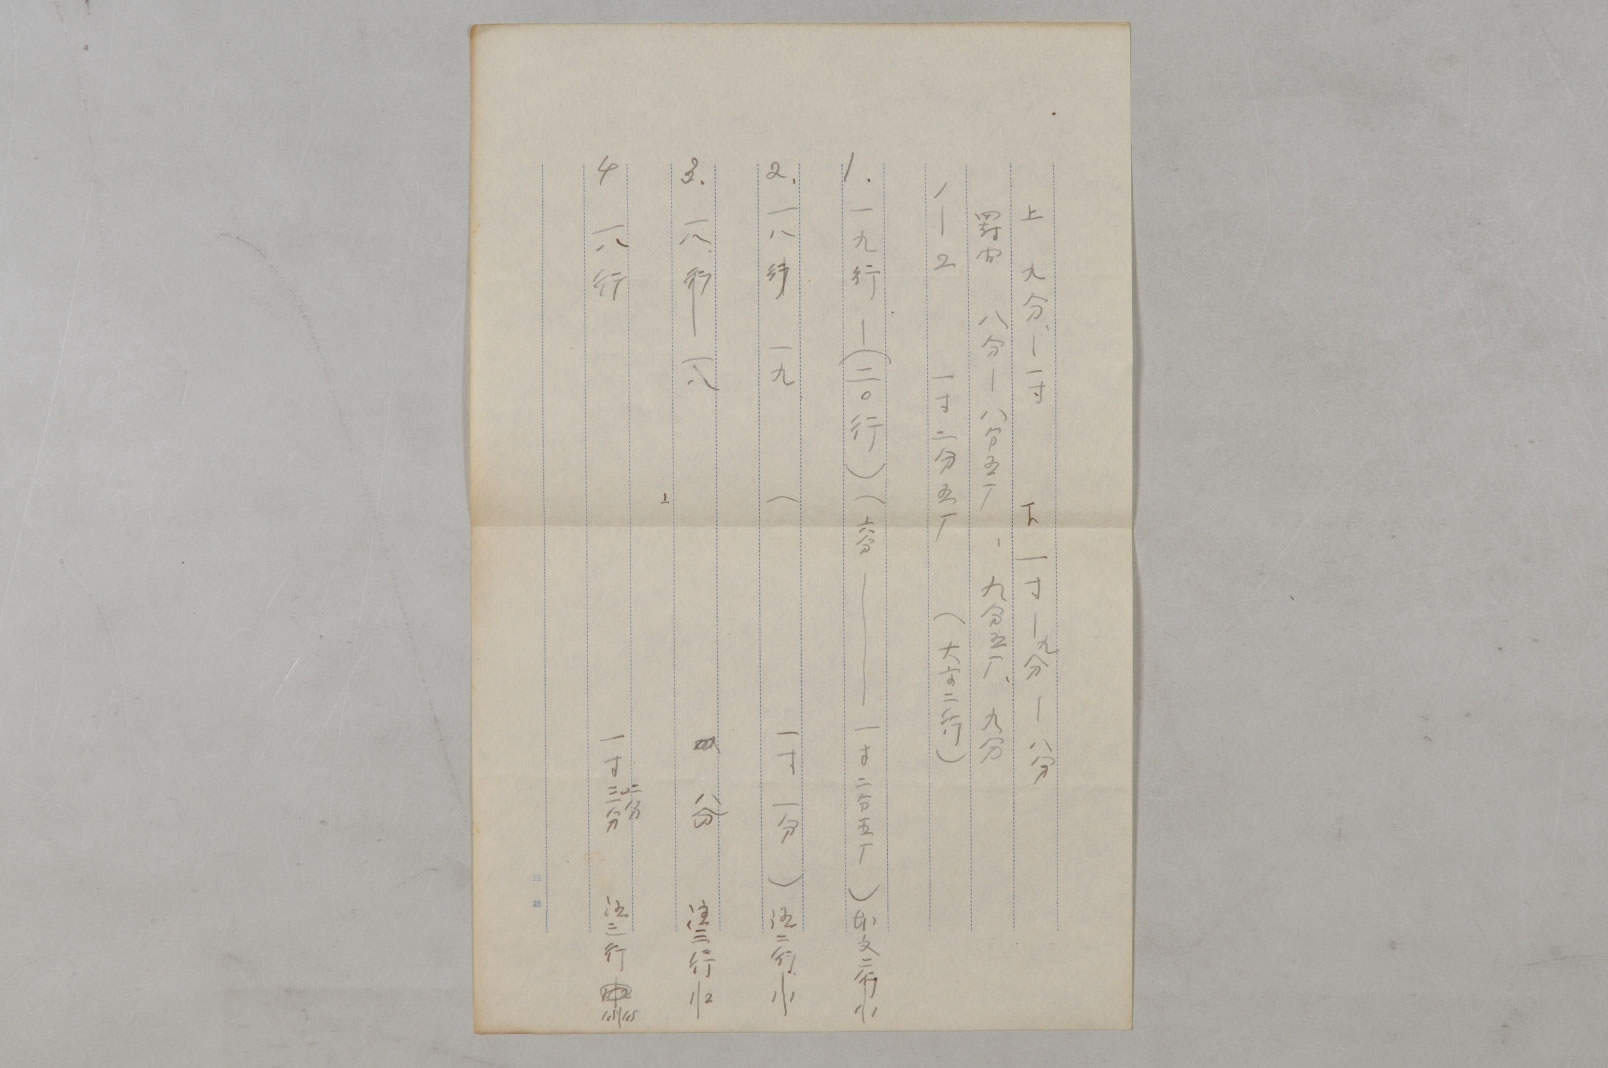 上 九分、一一寸 下 一寸一九分一八分
罫内 八分一八分五厂 、九分五厂、九分
1—2 一寸二分五厂 (大字二行)
1. 一九行—(二〇行)(六分——一寸二分五厂)本文二行小
2. 一八行 一九 (一寸一分)注二行小
3. 一八行—一八 八分 注二行小
上
4 一八行 一寸二分 注二行